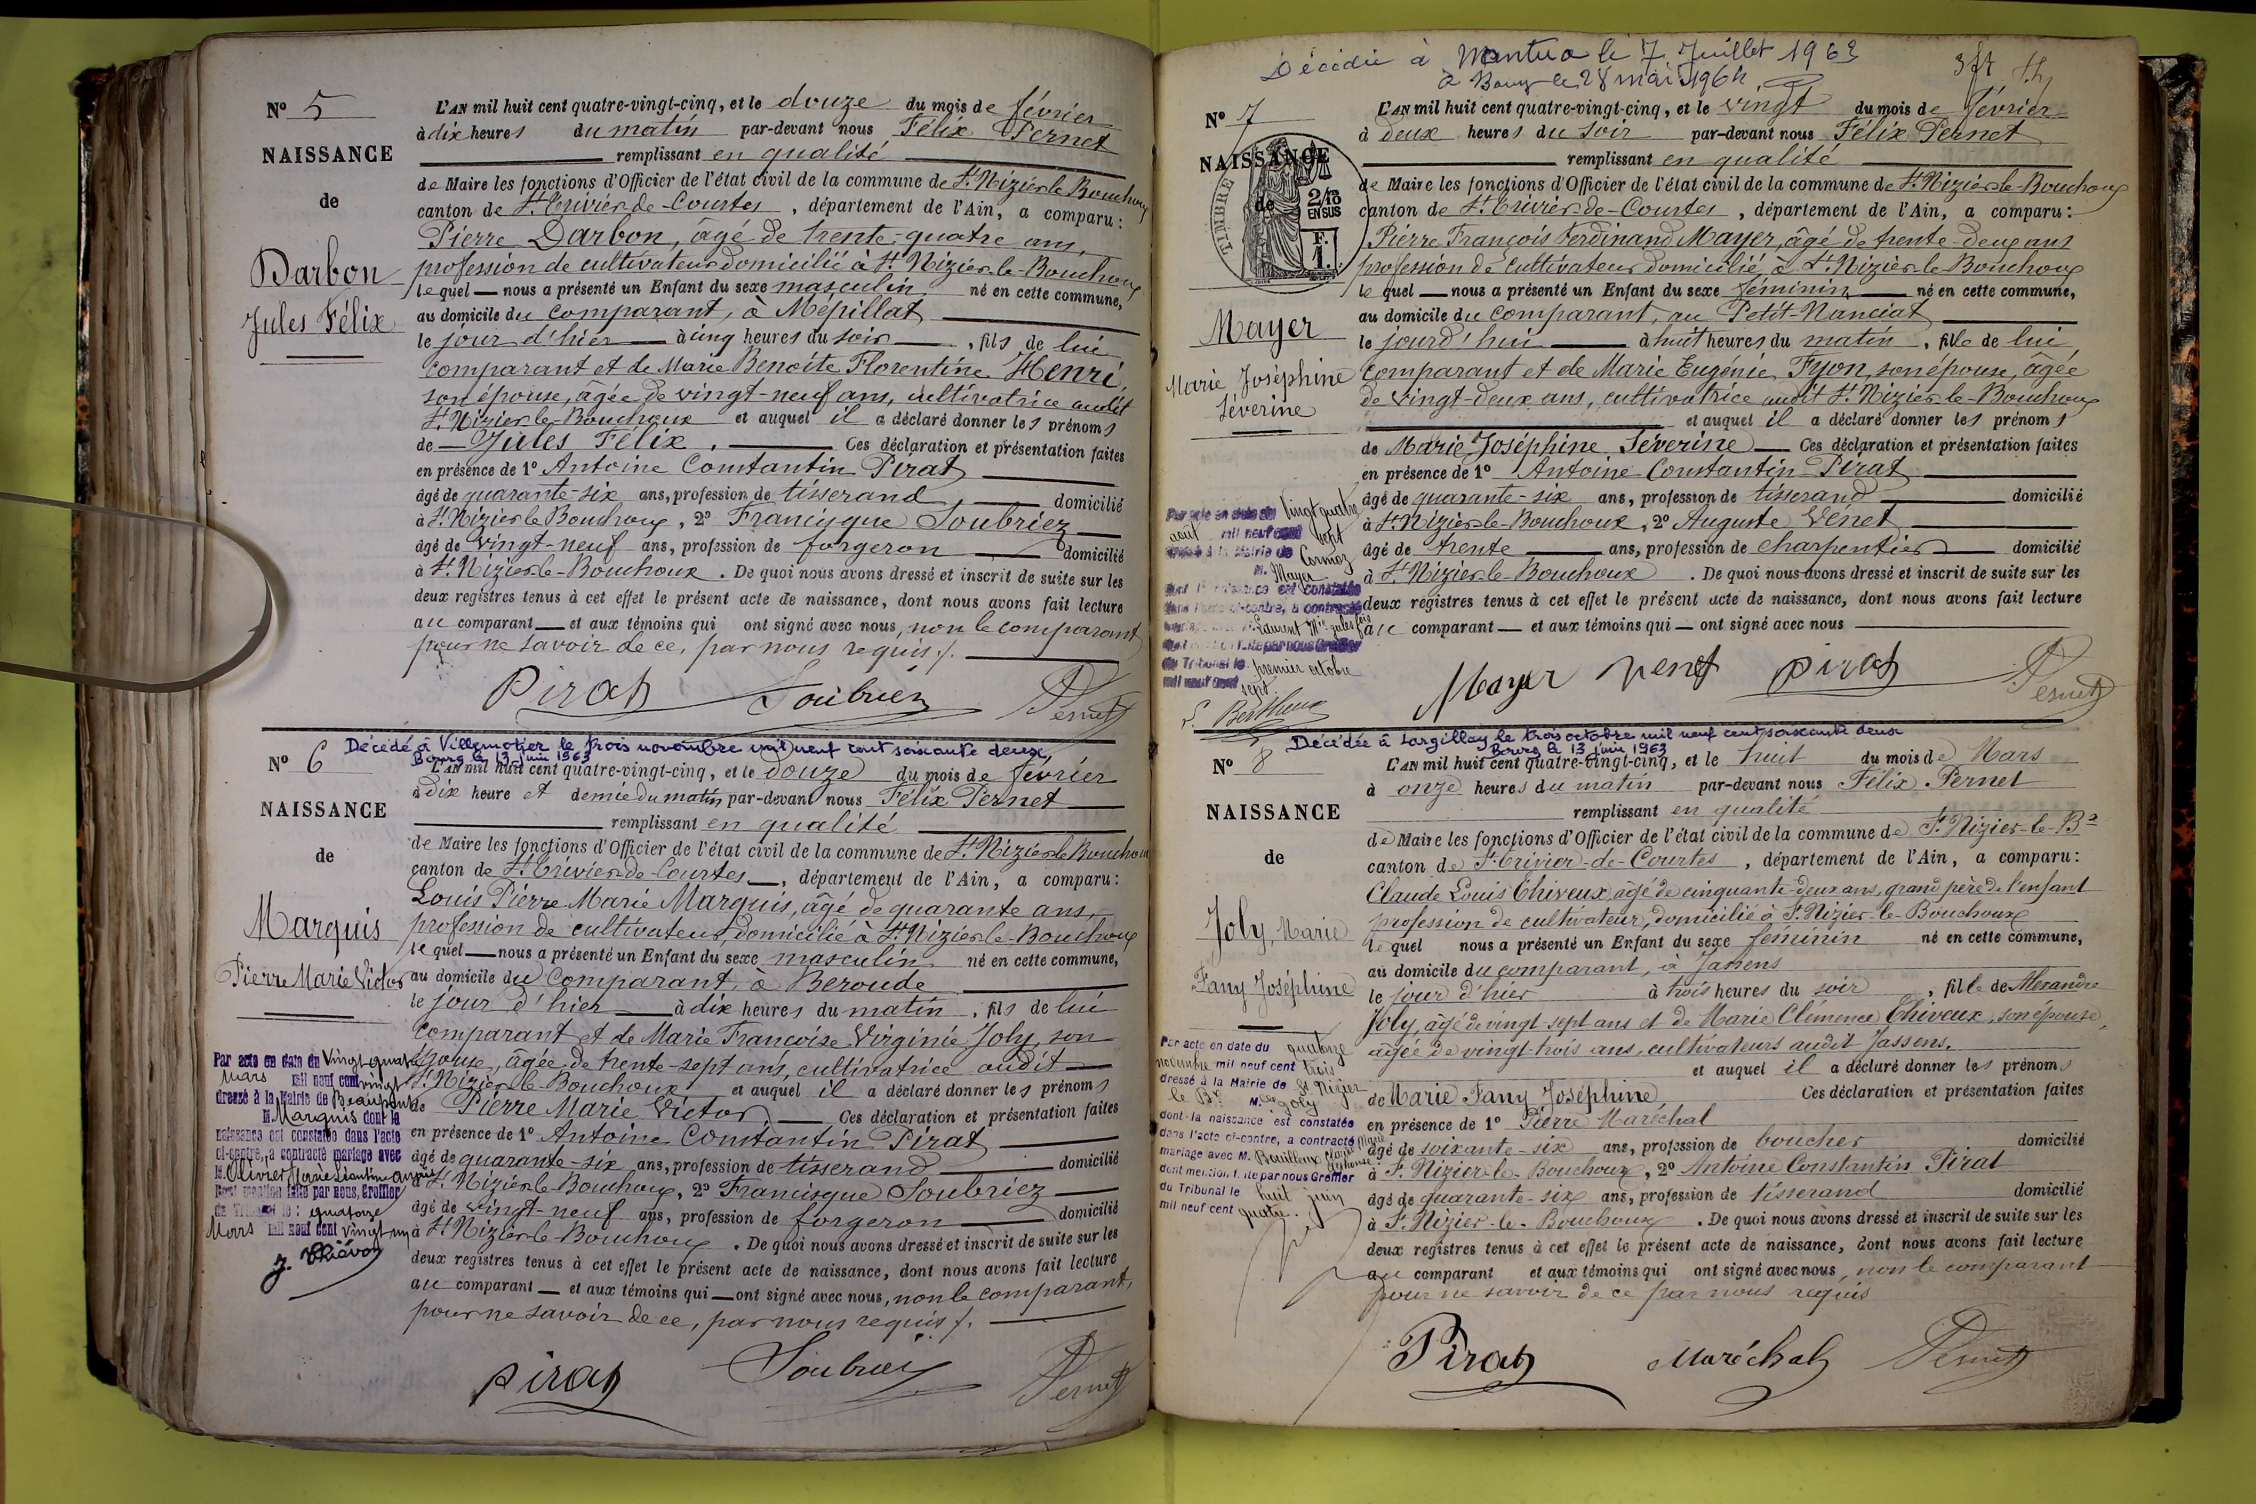 N° 5
NAISSANCE
de
Darbon
Jules Félix
L'AN mil huit cent quatre-vingt-cinq, et le douze du mois de février
à dix heures du matin par-devant nous Félix Pernet
remplissant en qualité
de Maire les fonctions d'Officier de l'état civil de la commune de St. Nizier-le Bouchoux
canton de St. Trivier-de-Courtes, département de l'Ain, a comparu :
Pierre Darbon, âgé de trente-quatre ans,
profession de cultivateur domicilié à St. Nizier-le-Bouchoux
lequel nous a présenté un Enfant du sexe masculin né en cette commune,
au domicile du comparant, à Mépillat
le jour d'hier à cinq heures du soir, fils de lui
comparant et de Marie Benoite Florentine Henri,
son épouse, âgée de vingt-neuf ans, cultivatrice audit
St. Nizier-le-Bouchoux et auquel il a déclaré donner les prénoms
de Jules Félix. Ces déclaration et présentation faites
en présence de 1° Antoine Constantin Pirat
âgé de quarante-six ans, profession de tisserand, domicilié
à St. Nizier-le Bouchoux, 2° Francisque Soubriez
âgé de vingt-neuf ans, profession de forgeron domicilié
à St. Nizier-le-Bouchoux. De quoi nous avons dressé et inscrit de suite sur les
deux registres tenus à cet effet le présent acte de naissance, dont nous avons fait lecture
au comparant et aux témoins qui ont signé avec nous, non le comparant
pour ne savoir de ce, par nous requis /.
Pirat Soubriez Pernet
Décédé à Villemotier le trois novembre mil neuf cent soixante deux,
Bourg le 13 juin 1963
N° 6
NAISSANCE
de
Marquis
Pierre Marie Victor
L'AN mil huit cent quatre-vingt-cinq, et le douze du mois de février
à dix heure et demie du matin par-devant nous Félix Pernet
remplissant en qualité
de Maire les fonctions d'Officier de l'état civil de la commune de St. Nizier-le Bouchoux
canton de St. Trivier-de-Courtes, département de l'Ain, a comparu :
Louis Pierre Marie Marquis, âgé de quarante ans,
profession de cultivateur, domicilié à St. Nizier-le-Bouchoux
lequel nous a présenté un Enfant du sexe masculin né en cette commune,
au domicile du comparant, à Beroude
le jour d'hier à dix heures du matin, fils de lui
comparant et de Marie Françoise Virginie Joly, son
épouse, âgée de trente-sept ans, cultivatrice audit
St. Nizier-le-Bouchoux et auquel il a déclaré donner les prénoms
de Pierre Marie Victor Ces déclaration et présentation faites
en présence de 1° Antoine Constantin Pirat
âgé de quarante-six ans, profession de tisserand domicilié
à St. Nizier-le Bouchoux, 2° Francisque Soubriez
âgé de vingt-neuf ans, profession de forgeron domicilié
à St. Nizier-le-Bouchoux. De quoi nous avons dressé et inscrit de suite sur les
deux registres tenus à cet effet le présent acte de naissance, dont nous avons fait lecture
au comparant et aux témoins qui ont signé avec nous, non le comparant,
pour ne savoir de ce, par nous requis /.
Pirat Soubriez Pernet
Par acte en date du vingt quatre
Mars mil neuf cent vingt
dressé à la Mairie de Beaupont
M. Marquis dont la
naissance est constatée dans l'acte
ci-contre, a contracté mariage avec
Olivier Marie Léontine
dont mention faite par nous, Greffier
du Tribunal le : quatorze
Mars mil neuf cent vingt un
Décédée à Nantua le 7 Juillet 1963
à Bourg le 28 mai 1964.
N° 7
NAISSANCE
de
TIMBRE
2/10
EN SUS
F.
1.
Mayer
Marie Joséphine
Séverine
L'AN mil huit cent quatre-vingt-cinq, et le vingt du mois de février
à deux heures du soir par-devant nous Félix Pernet
remplissant en qualité
de Maire les fonctions d'Officier de l'état civil de la commune de St. Nizier-le-Bouchoux
canton de St. Trivier-de-Courtes, département de l'Ain, a comparu :
Pierre François Ferdinand Mayer, âgé de trente-deux ans
profession de cultivateur domicilié à St. Nizier-le Bouchoux
lequel nous a présenté un Enfant du sexe féminin né en cette commune,
au domicile du comparant, au Petit-Nanciat
le jourd'hui à huit heures du matin, fille de lui
comparant et de Marie Eugénie Fyon, son épouse, âgée
de vingt-deux ans, cultivatrice audit St. Nizier-le-Bouchoux
et auquel il a déclaré donner les prénoms
de Marie Joséphine Séverine Ces déclaration et présentation faites
en présence de 1° Antoine Constantin Pirat
âgé de quarante-six ans, profession de tisserand domicilié
à St. Nizier-le-Bouchoux, 2° Auguste Vénet
âgé de trente ans, profession de charpentier domicilié
à St. Nizier-le-Bouchoux. De quoi nous avons dressé et inscrit de suite sur les
deux registres tenus à cet effet le présent acte de naissance, dont nous avons fait lecture
au comparant et aux témoins qui ont signé avec nous
Mayer Venet Pirat Pernet
Par acte en date du vingt quatre
août mil neuf cent sept
dressé à la Mairie de Cormoz
M. Mayer
dont la naissance est constatée
dans l'acte ci-contre, a contracté
Laurent
dont mention faite par nous Greffier
du Tribunal le premier octobre
mil neuf cent sept.
Décédée à le trois octobre mil neuf cent soixante deux
Bourg le 13 juin 1963
N° 8
NAISSANCE
de
Joly, Marie
Fany Joséphine
L'AN mil huit cent quatre-vingt-cinq, et le huit du mois de Mars
à onze heures du matin par-devant nous Félix Pernet
remplissant en qualité
de Maire les fonctions d'Officier de l'état civil de la commune de St. Nizier-le-Bx
canton de St-Trivier-de-Courtes, département de l'Ain, a comparu :
Claude Louis Thiveux, âgé de cinquante-deux ans, grand père de l'enfant
profession de cultivateur, domicilié à St. Nizier-le-Bouchoux
lequel nous a présenté un Enfant du sexe féminin né en cette commune,
au domicile du comparant, à Jassens
le jour d'hier à trois heures du soir, fille de Alexandre
Joly, âgé de vingt-sept ans et de Marie Clémence Thiveux, son épouse,
âgée de vingt-trois ans, cultivateurs audit Jassens.
et auquel il a déclaré donner les prénoms
de Marie Fany Joséphine Ces déclaration et présentation faites
en présence de 1° Pierre Maréchal
âgé de soixante-six ans, profession de boucher domicilié
à St. Nizier-le-Bouchoux, 2° Antoine Constantin Pirat
âgé de quarante-six ans, profession de tisserand domicilié
à St. Nizier-le-Bouchoux. De quoi nous avons dressé et inscrit de suite sur les
deux registres tenus à cet effet le présent acte de naissance, dont nous avons fait lecture
au comparant et aux témoins qui ont signé avec nous, non le comparant
pour ne savoir de ce par nous requis
Pirat Maréchal Pernet
Par acte en date du quatorze
novembre mil neuf cent trois
dressé à la Mairie de St Nizier
le Bx M. Joly
dont la naissance est constatée
dans l'acte ci-contre, a contracté
mariage avec M.
dont mention faite par nous Greffier
du Tribunal le huit juin
mil neuf cent quatre.